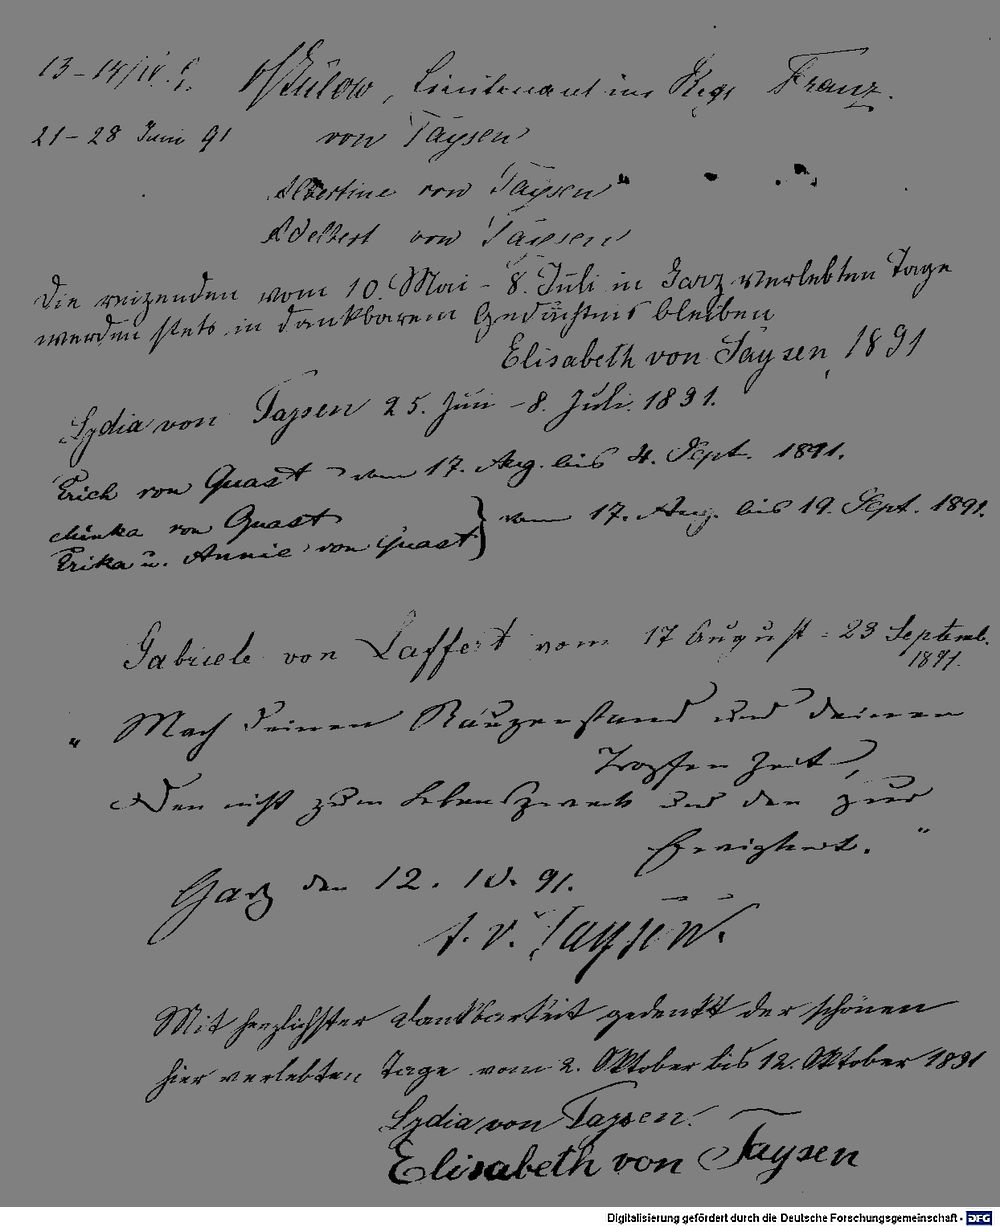 13–14/IV. 91. vBülow, Lieutenant im Regt Franz.
21–28 Juni 91 von Taysen
Albertine von Taysen "
Adelbert von Taysen
Die reizenden vom 10. Mai – 8. Juli in Garz verlebten Tage
werden stets in dankbarem Gedächtnis bleiben
Elisabeth von Taysen, 1891
Lydia von Taysen 25. Juni – 8. Juli. 1891.
Erich von Quast vom 17. Aug. bis 4. Sept. 1891.
von Quast } vom 17. Aug. bis 19. Sept. 1891.
Erika u. Annie von Quast
Gabriele von Laffert vom 17 August – 23 Septemb.
1891.
„Mach deinen Räupenstand und deinen
Tropfen Zeit,
Den nicht zum Lebenszweck und den zur
Ewigkeit."
Garz den 12. 10. 91.
v. Taysen.
Mit herzlichster Dankbarkeit gedenkt der schönen
hier verlebten Tage vom 2. Oktober bis 12. Oktober 1891
Lydia von Taysen.
Elisabeth von Taysen
Digitalisierung gefördert durch die Deutsche Forschungsgemeinschaft - DFG